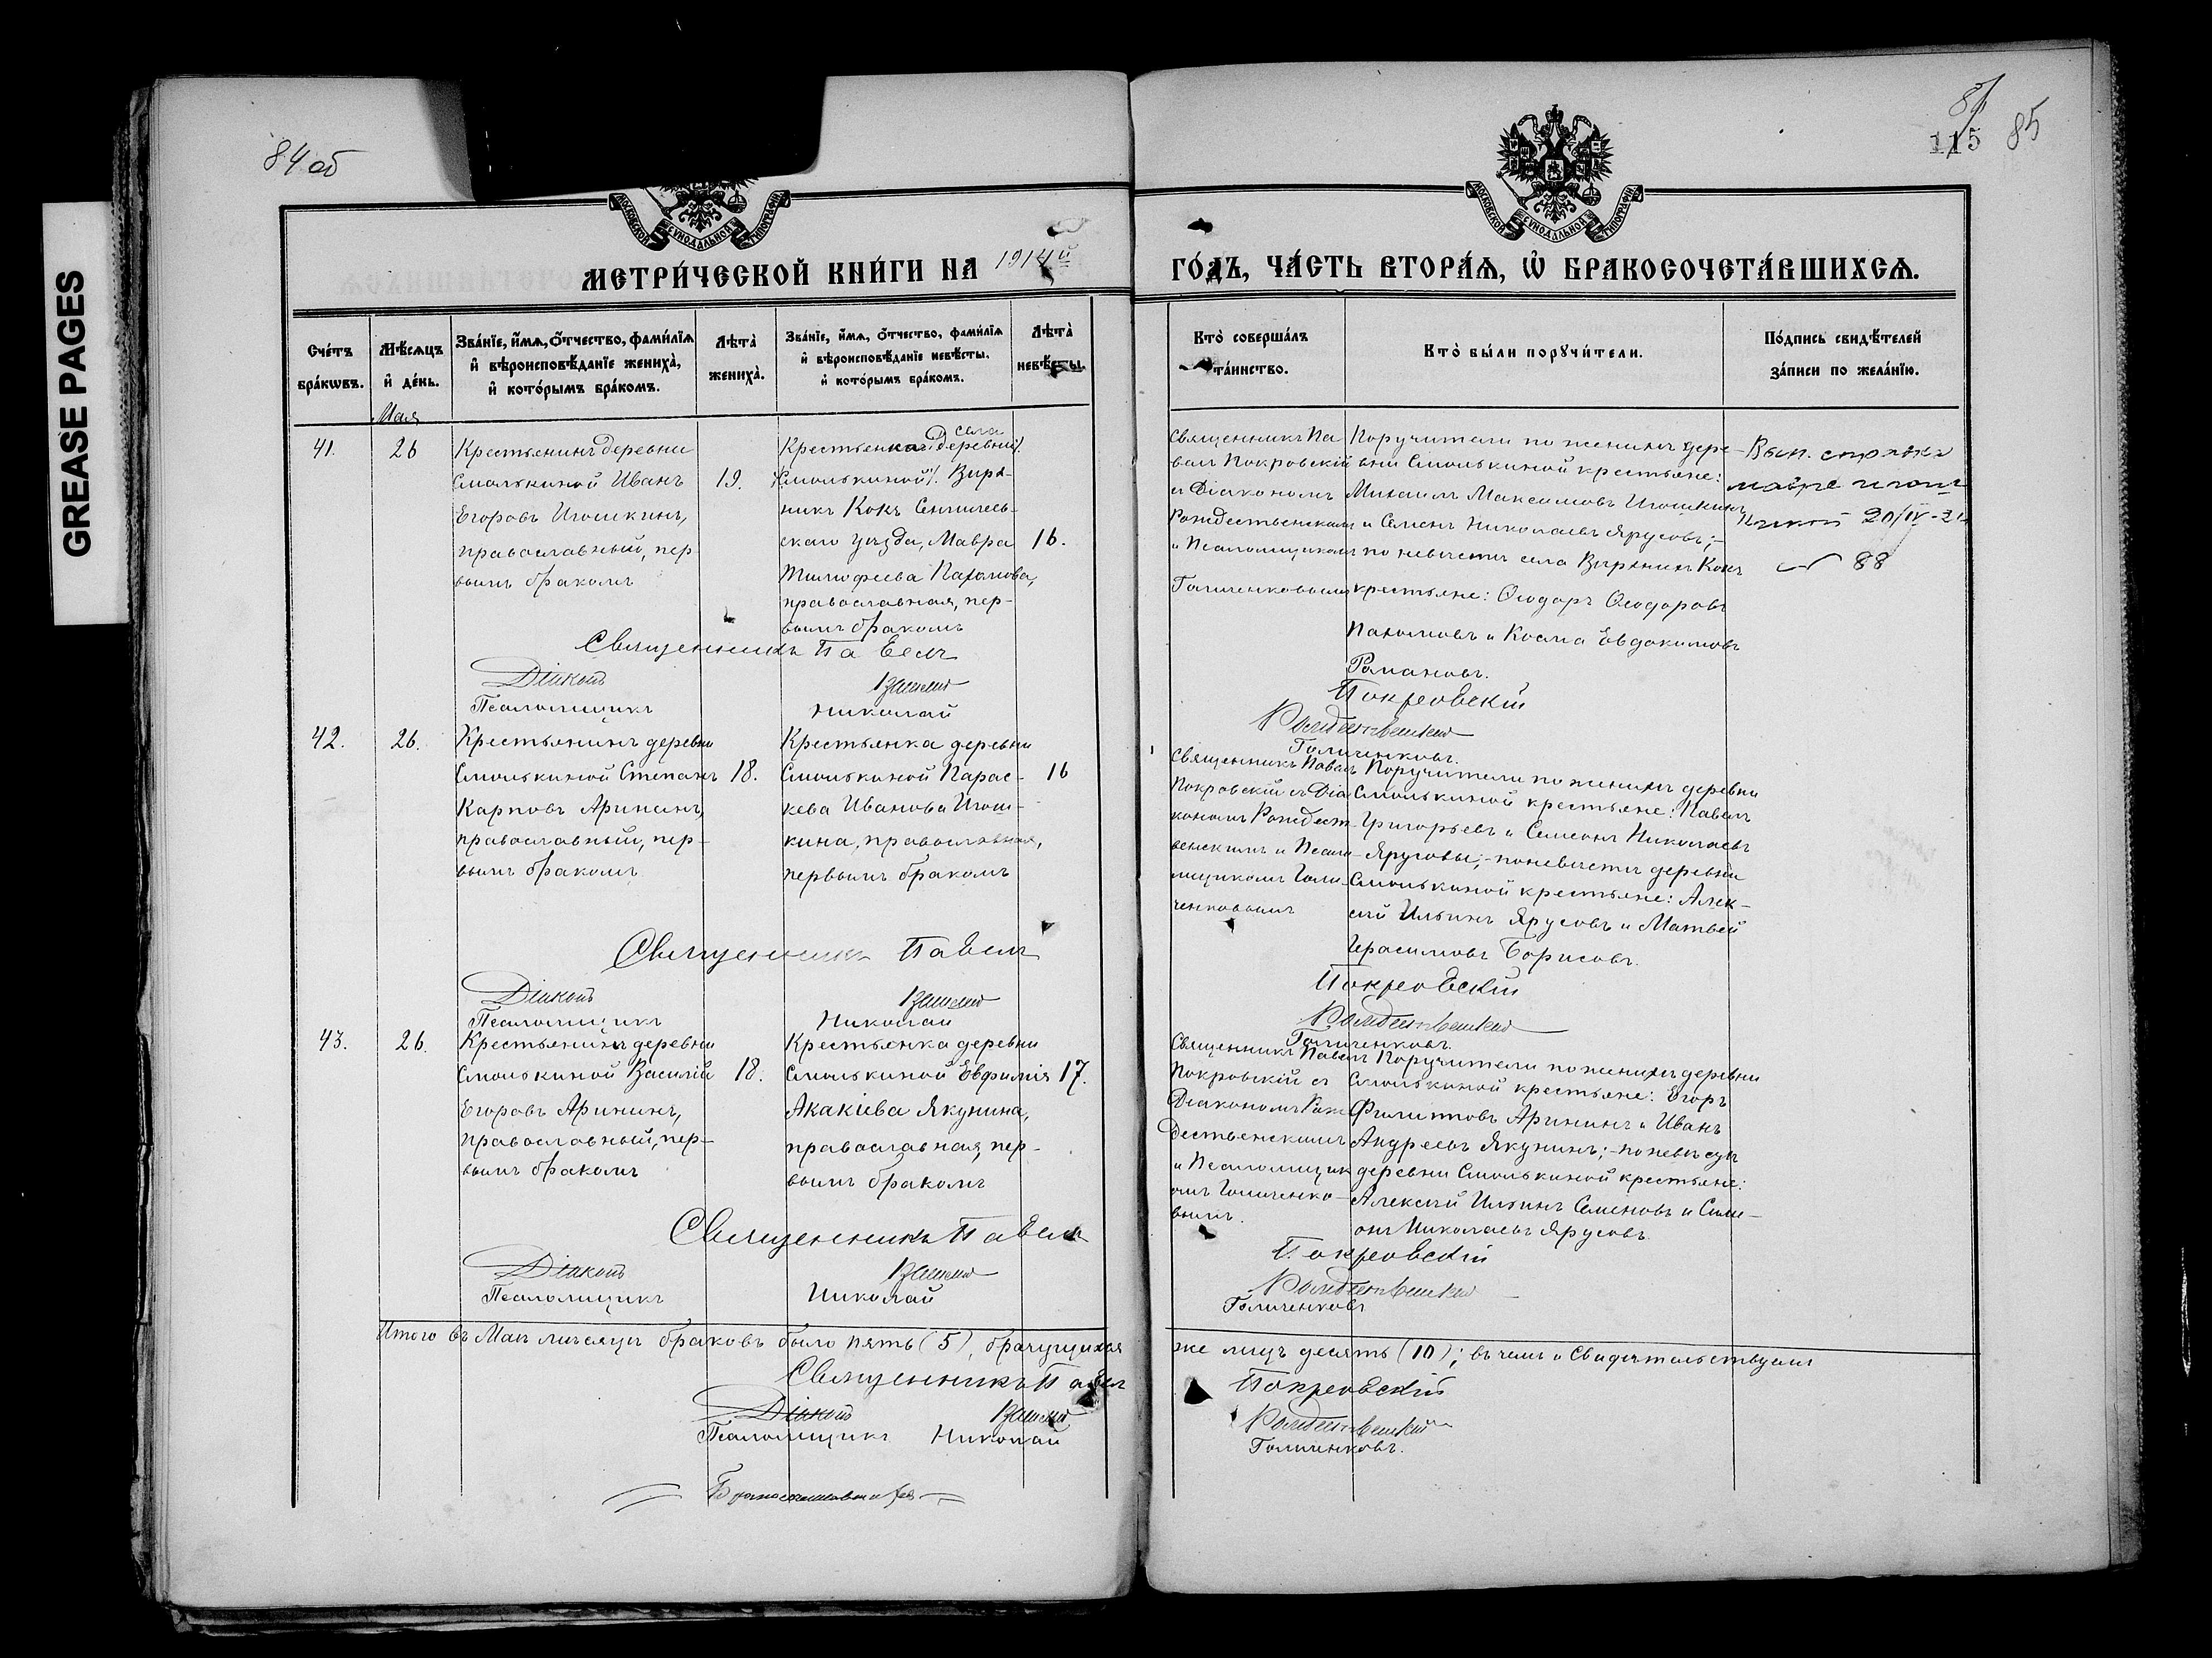 GREASE PAGES
84 об
115 85
МОСКОВСКОЙ СѴНОДАЛЬНОЙ ТИПОГРАФІИ
МОСКОВСКОЙ СѴНОДАЛЬНОЙ ТИПОГРАФІИ
МЕТРИ́ЧЕСКОЙ КНИ́ГИ НА 1914й
ГО́ДЪ, ЧА́СТЬ ВТОРА́Ѧ, Ѡ҆ БРАКОСОЧЕТА́ВШИХСѦ.
Сче́тъ
бра́кѡвъ.
Мѣ́сѧцъ
и҆ де́нь.
Зва́нїе, и҆́мѧ, ѻ҆́тчество, фами́лїѧ
и҆ вѣроисповѣ́данїе жениха̀,
и҆ кото́рымъ бра́комъ.
Лѣта̀
жениха̀.
Зва́нїе, и҆́мѧ, ѻ҆́тчество, фами́лїѧ
и҆ вѣроисповѣ́данїе невѣ́сты.
и҆ кото́рымъ бра́комъ.
Лѣта̀
невѣ́сты.
Кто̀ соверша́лъ
та́инство.
Кто̀ бы́ли порꙋчи́тели.
По́дпись свидѣ́телей
за́писи по жела́нїю.
Мая
41.
26
Крестьянинъ деревни
Смолькиной Иванъ
Егоровъ Игошкинъ,
православный, пер
вымъ бракомъ
19.
села
Крестьянка (деревни
Смолькиной). Виря-
никъ
ского уѣзда, Мавра
Тимофеева Пахомова,
православная, пер-
вымъ бракомъ
16.
Священникъ Па
велъ Покровскій
съ Діакономъ
Рождественскимъ
и Псаломщикомъ
Голиченковымъ
Поручители по женихѣ дере-
вни Смолькиной крестьяне:
Михаилъ Максимовъ Игошкинъ
и Семенъ Николаевъ Ярусовъ;-
по невѣстѣ села
крестьяне: Ѳеодоръ Ѳеодоровъ
Пахомовъ и Косма Евдокимовъ
Романовъ.
Вып. справка
20/IV-
№ 88
Священникъ Павелъ Покровскій
Діаконъ Рождественскій
Псаломщикъ Николай Голиченковъ.
42.
26.
Крестьянинъ деревни
Смолькиной Степанъ
Карповъ Арининъ,
православный, пер-
вымъ бракомъ
18.
Крестьянка деревни
Смолькиной Парас-
кева Иванова Игош-
кина, православная,
первымъ бракомъ
16
Священникъ Павелъ
Покровскій съ Діа
кономъ Рождест-
венскимъ и Псало-
мщикомъ Голи-
ченковымъ
Поручители по женихѣ деревни
Смолькиной крестьяне: Павелъ
Григорьевъ и Семеонъ Николаевъ
Ярусовы;-по невѣстѣ деревни
Смолькиной крестьяне: Алек-
сѣй Ильинъ Ярусовъ и Матвей
Герасимовъ Борисовъ.
Священникъ Павелъ Покровскій
Діаконъ Рождественскій
Псаломщикъ Николай Голиченковъ.
43.
26.
Крестьянинъ деревни
Смолькиной Василій
Егоровъ Арининъ,
православный, пер-
вымъ бракомъ
18.
Крестьянка деревни
Смолькиной Евфимія
Акакіева Якунина,
православная, пер-
вымъ бракомъ
17.
Священникъ Павелъ
Покровскій съ
Діакономъ Рож
дественскимъ
и Псаломщик
омъ Голиченко-
вымъ.
Поручители по женихѣ деревни
Смолькиной крестьяне: Егоръ
Филипповъ Арининъ и Иванъ
Андреевъ Якунинъ;-по невѣстѣ
деревни Смолькиной крестьяне:
Алексѣй Ильинъ Семеновъ и Симе-
онъ Николаевъ Ярусовъ.
Священникъ Павелъ Покровскій
Діаконъ Рождественскій
Псаломщикъ Николай Голиченковъ
Итого въ Маѣ мѣсяцѣ браковъ было пять (5), брачущихся же лицъ десять (10); въ чемъ и свидѣтельствуемъ
Священникъ Павелъ Покровскій
Діаконъ Рождественскій
Псаломщикъ Николай Голиченковъ.